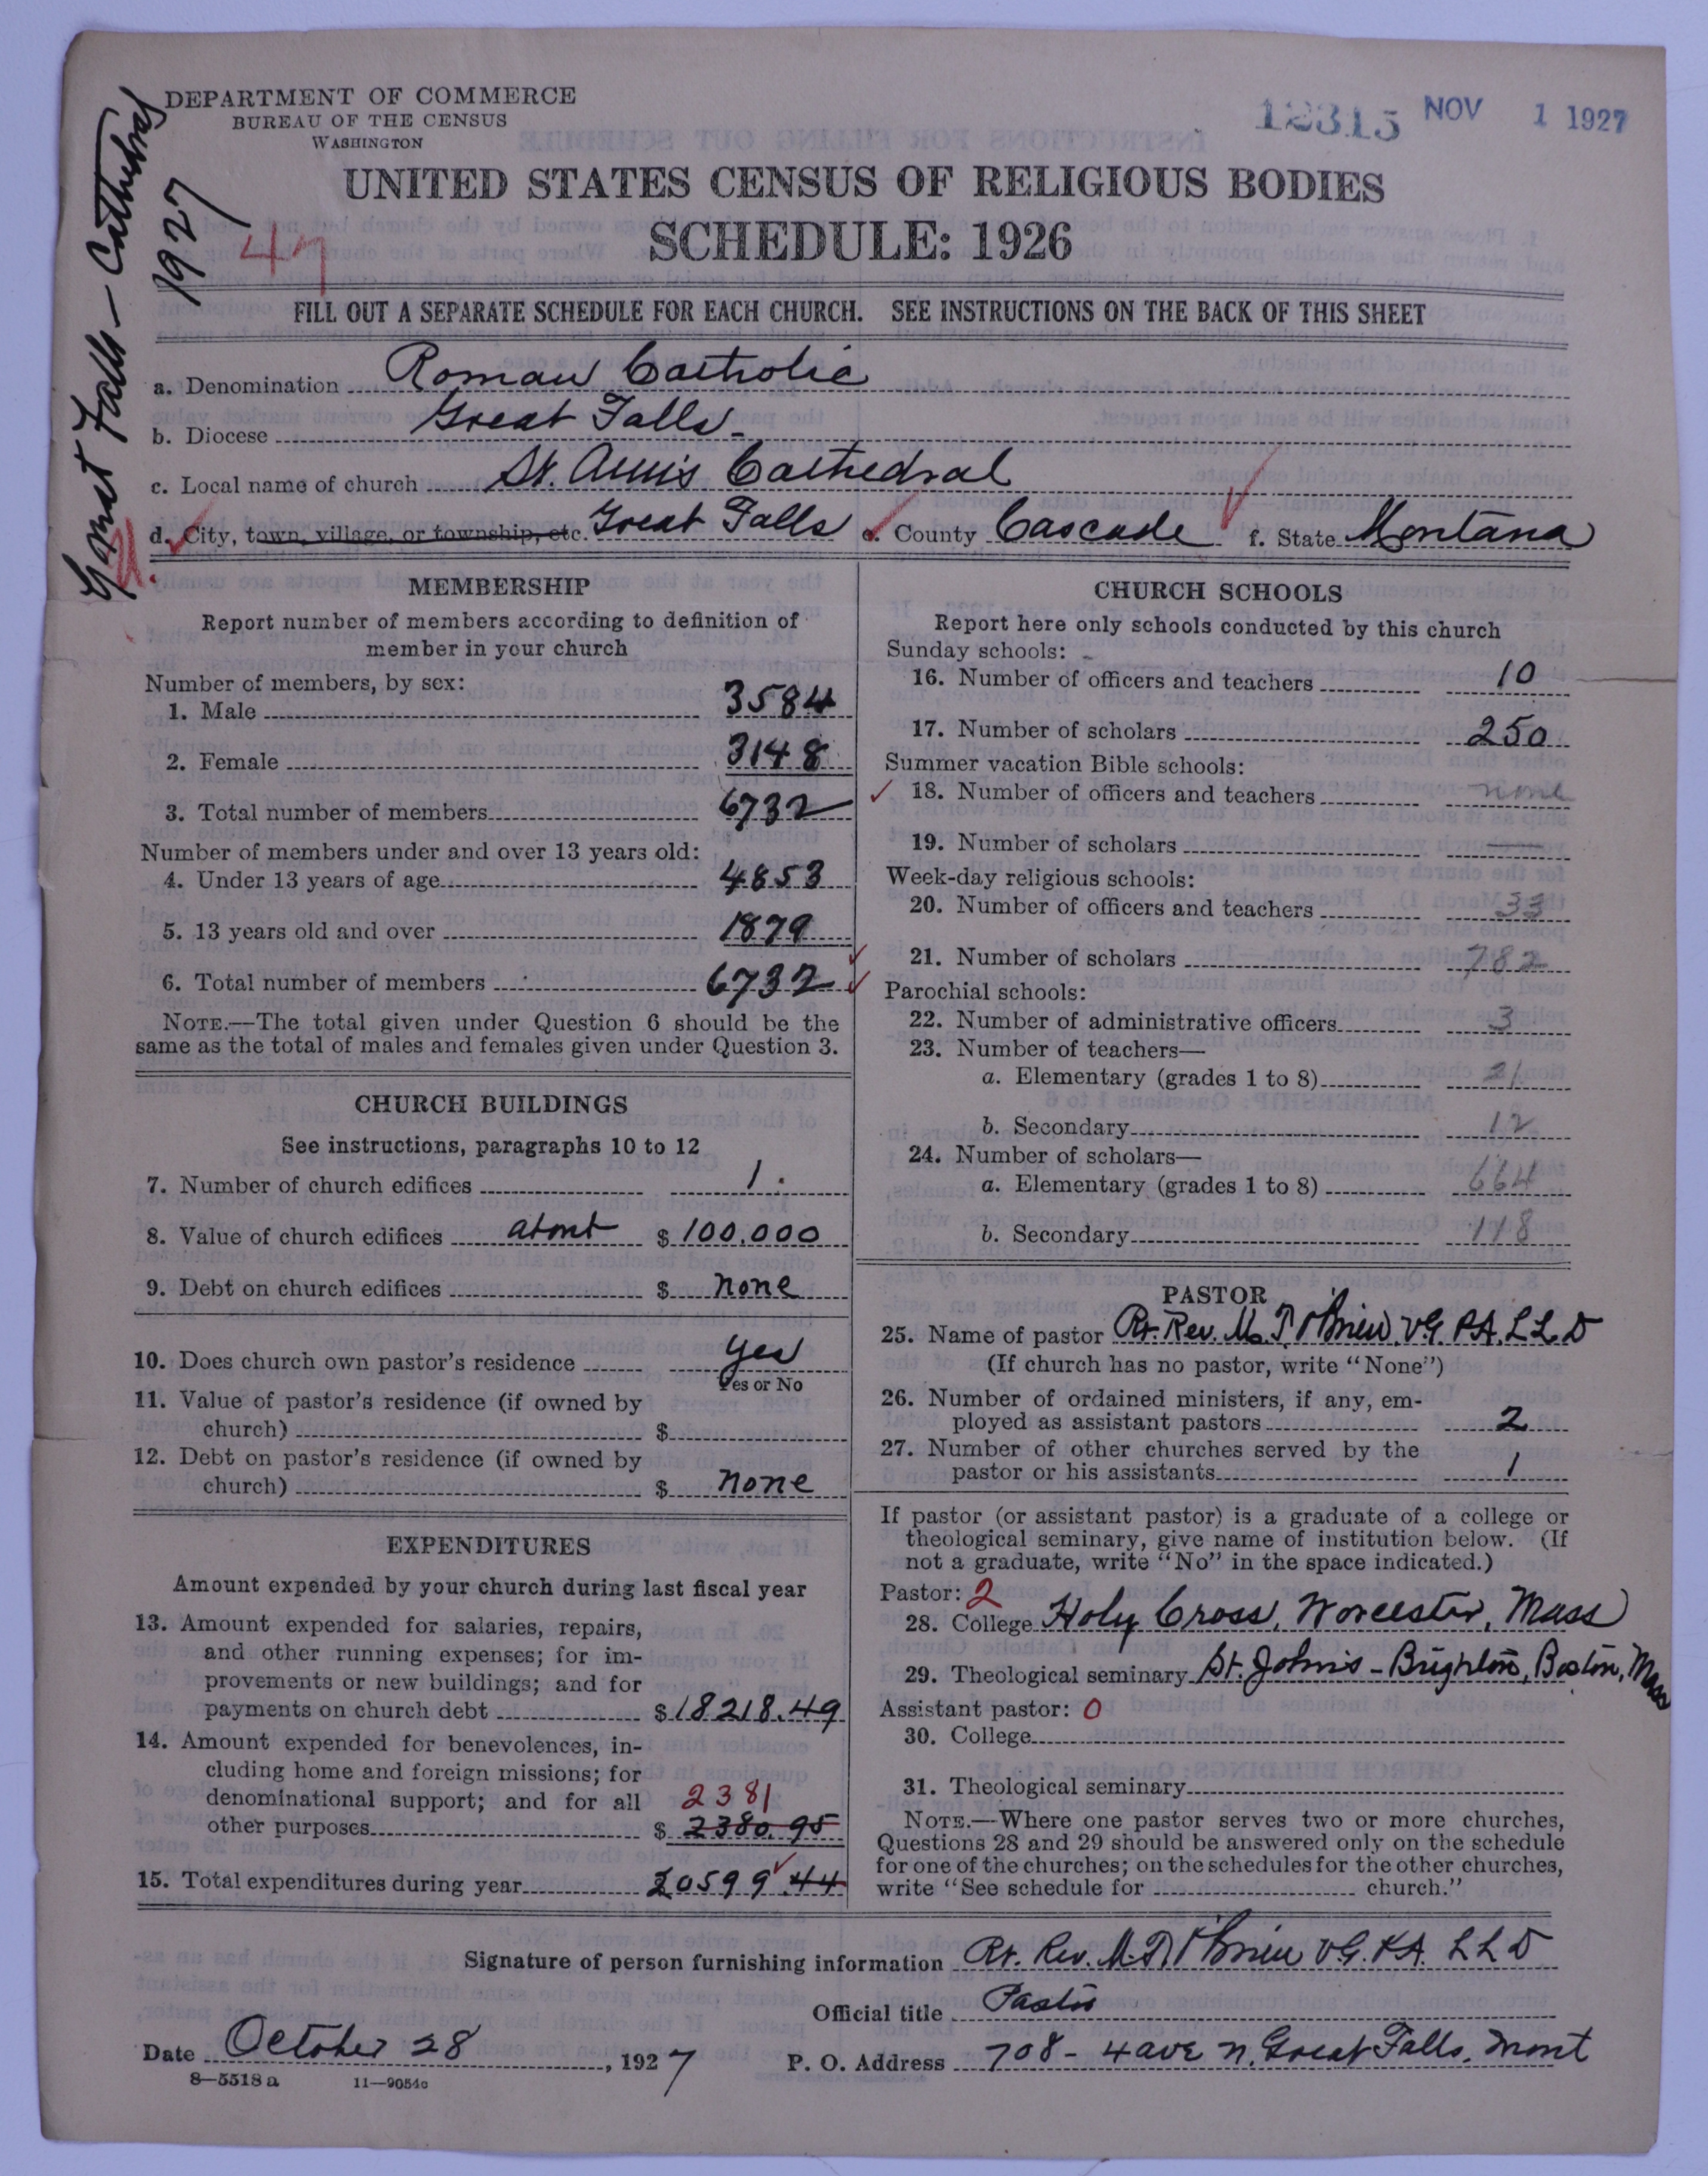 DEPARTMENT OF COMMERCE
BUREAU OF THE CENSUS
WASHINGTON
12315 NOV 1 1927
Great Falls - Cathedral
1927
47
UNITED STATES CENSUS OF RELIGIOUS BODIES
SCHEDULE: 1926
FILL OUT A SEPARATE SCHEDULE FOR EACH CHURCH. SEE INSTRUCTIONS ON THE BACK OF THIS SHEET
a. Denomination Roman Catholic
b. Diocese Great Falls-
c. Local name of church St. Ann's Cathedral
d. City, town, village, or township, etc. Great Falls e. County Cascade f. State Montana
MEMBERSHIP
Report number of members according to definition of
member in your church
Number of members, by sex:
1. Male 3584
2. Female 3148
3. Total number of members 6732
Number of members under and over 13 years old:
4. Under 13 years of age 4853
5. 13 years old and over 1879
6. Total number of members 6732
NOTE.—The total given under Question 6 should be the
same as the total of males and females given under Question 3.
CHURCH BUILDINGS
See instructions, paragraphs 10 to 12
7. Number of church edifices 1.
8. Value of church edifices about $ 100.000
9. Debt on church edifices $ none
10. Does church own pastor's residence yes
Yes or No
11. Value of pastor's residence (if owned by
church) $
12. Debt on pastor's residence (if owned by
church) $ none
EXPENDITURES
Amount expended by your church during last fiscal year
13. Amount expended for salaries, repairs,
and other running expenses; for im-
provements or new buildings; and for
payments on church debt $ 18218.49
14. Amount expended for benevolences, in-
cluding home and foreign missions; for
denominational support; and for all 2381
other purposes $ 2380.95
15. Total expenditures during year 20599.44
CHURCH SCHOOLS
Report here only schools conducted by this church
Sunday schools: -
16. Number of officers and teachers 10
17. Number of scholars 250
Summer vacation Bible schools:
18. Number of officers and teachers none
19. Number of scholars
Week-day religious schools:
20. Number of officers and teachers 33
21. Number of scholars 782
Parochial schools:
22. Number of administrative officers 3
23. Number of teachers—
a. Elementary (grades 1 to 8) 21
b. Secondary 12
24. Number of scholars—
a. Elementary (grades 1 to 8) 664
b. Secondary 118
PASTOR
25. Name of pastor Rt. Rev. M. J. O'Brien V.G. P.A. L L D
(If church has no pastor, write "None")
26. Number of ordained ministers, if any, em-
ployed as assistant pastors 2
27. Number of other churches served by the
pastor or his assistants 1
If pastor (or assistant pastor) is a graduate of a college or
theological seminary, give name of institution below. (If
not a graduate, write "No" in the space indicated.)
Pastor: 2
28. College Holy Cross, Worcester, Mass
29. Theological seminary St. John's - Brighton, Boston, Mass
Assistant pastor: 0
30. College
31. Theological seminary
NOTE.—Where one pastor serves two or more churches,
Questions 28 and 29 should be answered only on the schedule
for one of the churches; on the schedules for the other churches,
write "See schedule for church."
Signature of person furnishing information Rt. Rev. M. J. O'Brien V.G. P.A. L L D
Official title Pastor
Date October 28, 1927 P. O. Address 708 - 4 ave N. Great Falls, Mont
8—5518 a 11—9054c